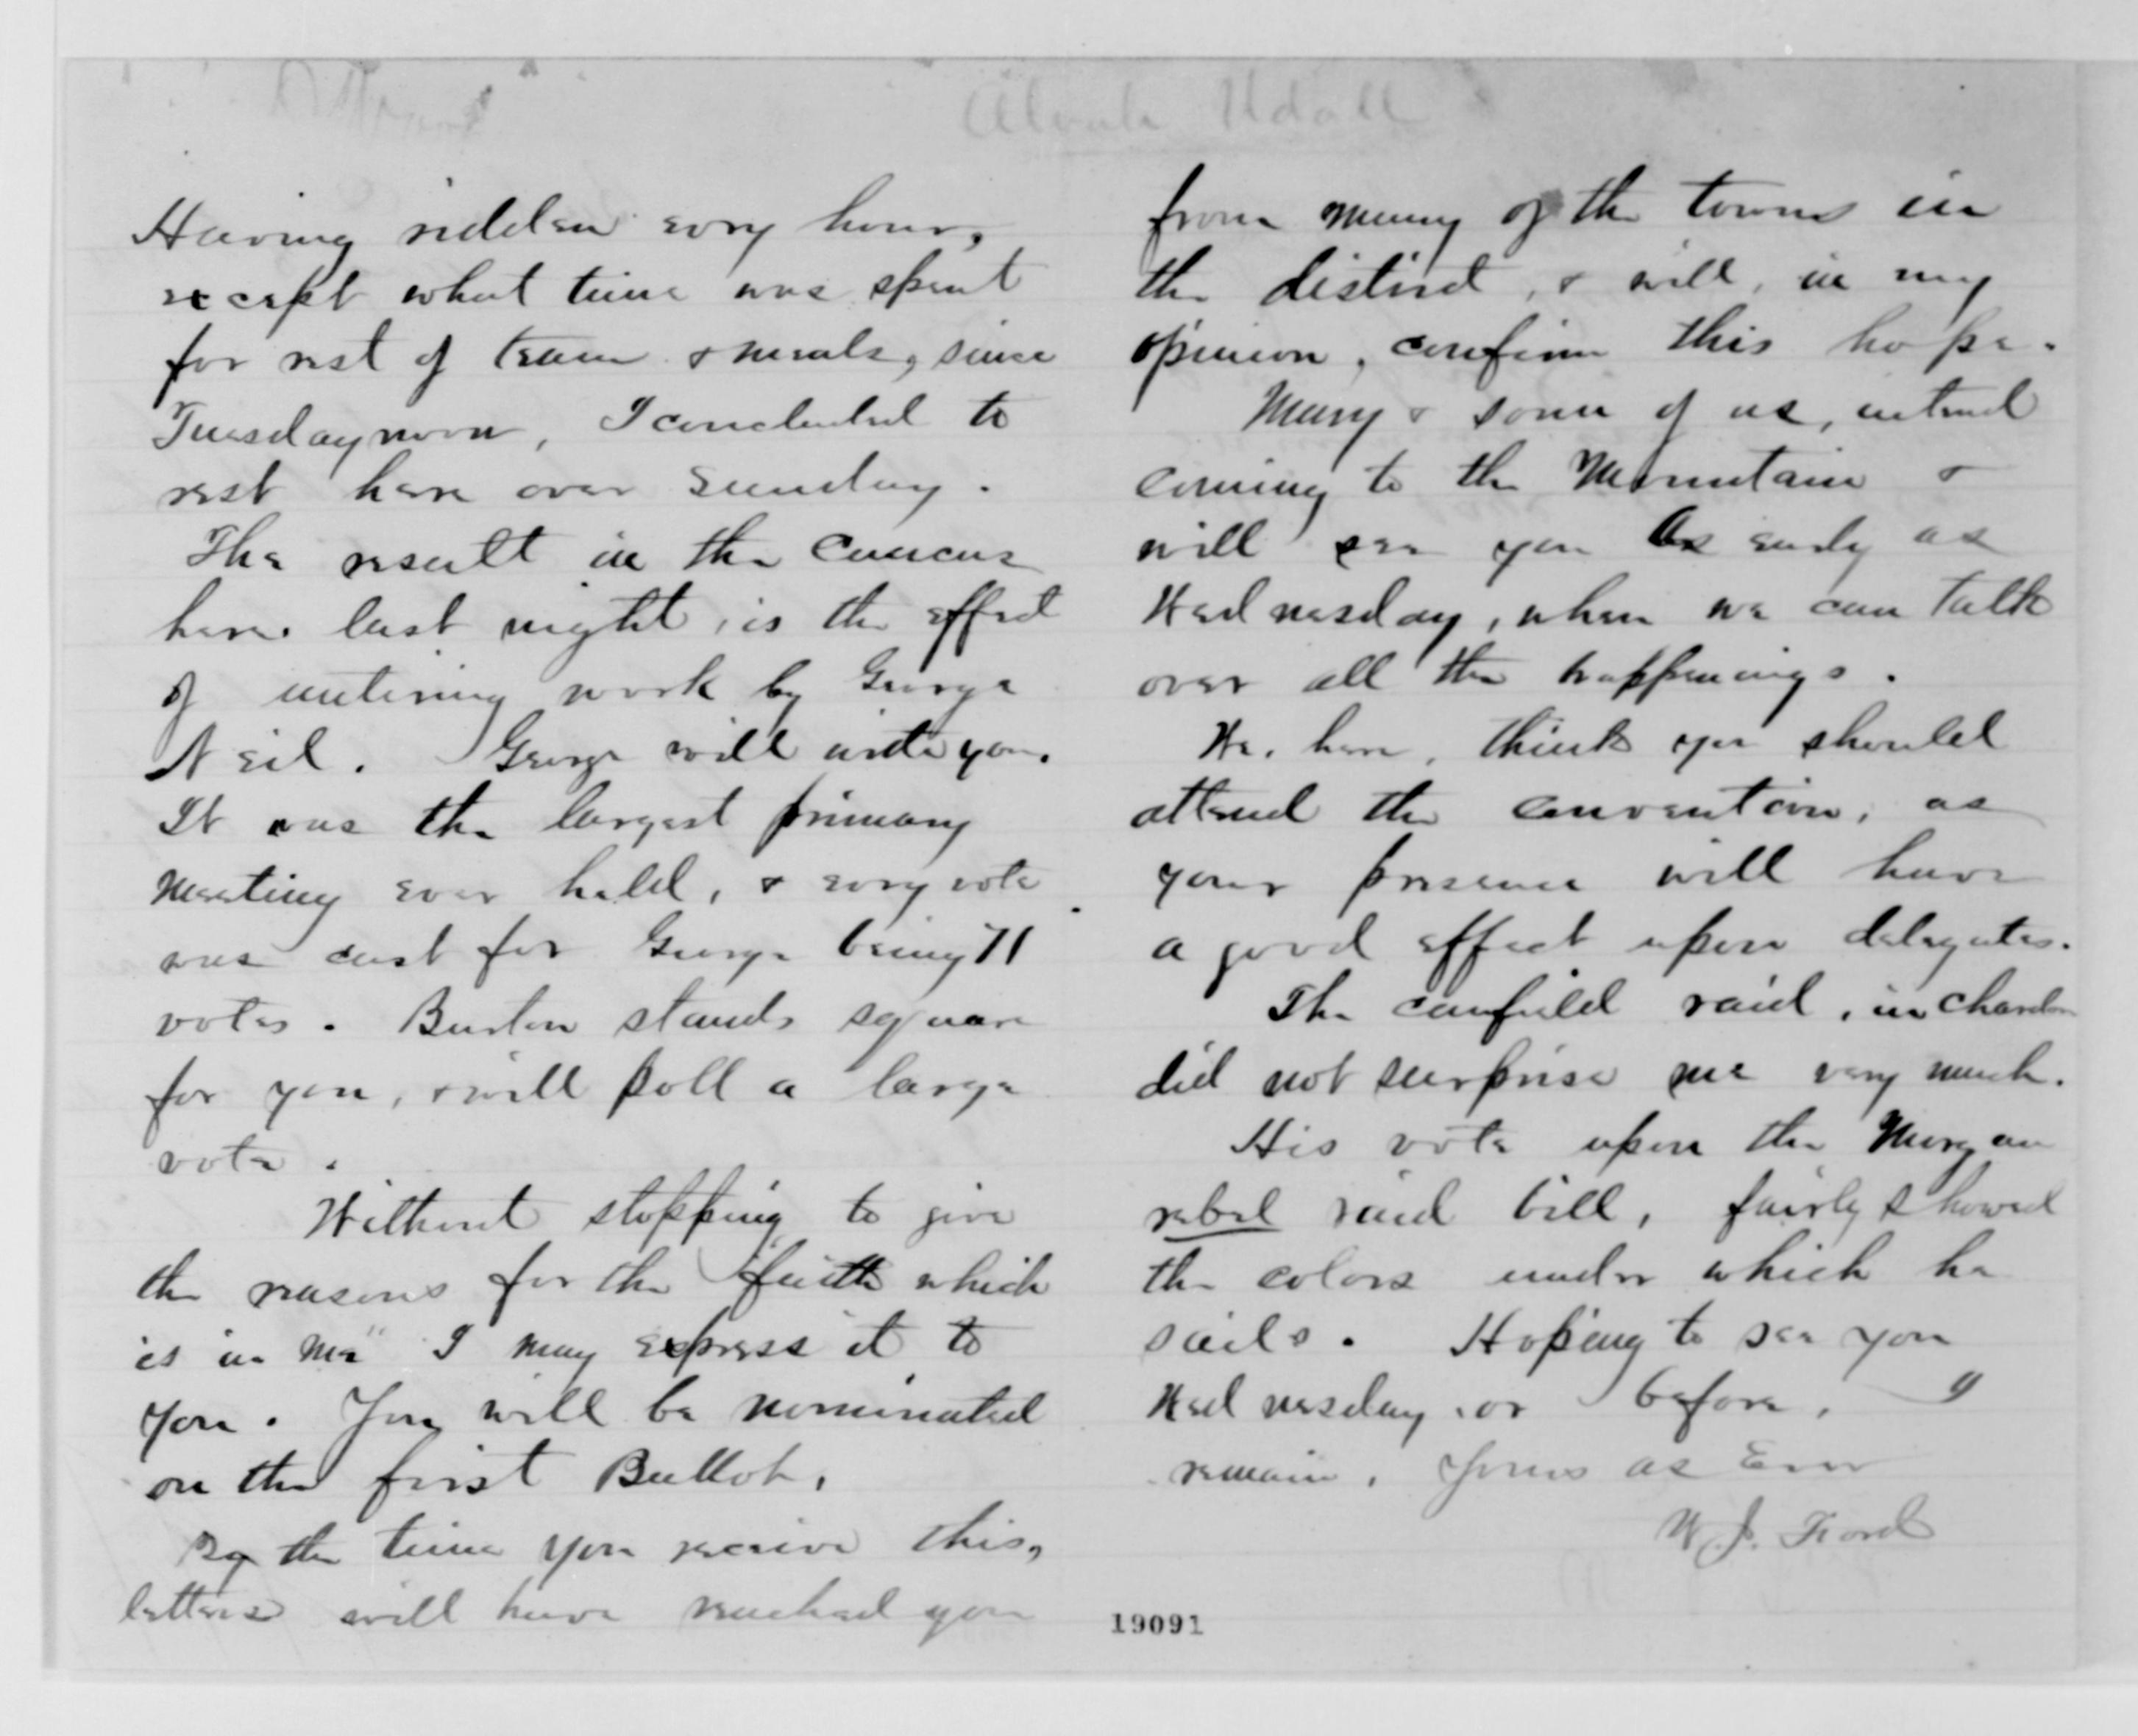 Alvah Udall
Having ridden every hour,
except what time was spent
for rest of team & meals, since
Tuesday noon, I concluded to
rest here over Sunday.
The result in the Caucus
here last night, is the effect
of untiring work by George
Neil. George will write you.
It was the largest primary
meeting ever held, & every vote
was cast for George being 71
votes. Burton stands square
for you, & will poll a large
vote.
Without stopping to give
the reasons for the "faith which
is in me" I may express it to
you. You will be nominated
on the first Ballot.
By the time you receive this,
letters will have reached you
from many of the towns in
the district, & will, in my
opinion, confirm this hope.
Many & some of us, intend
coming to the Mountain &
will see you as early as
Wednesday, when we can talk
over all the happenings.
We, here, think you should
attend the convention, as
your presence will have
a good effect upon delegates.
The canfield raid, in Chardon
did not surprise me very much.
His vote upon the Morgan
rebel raid bill, fairly showed
the colors under which he
sails. Hoping to see you
Wednesday or before, I
remain, Yours as Ever
W. J. Ford
19091